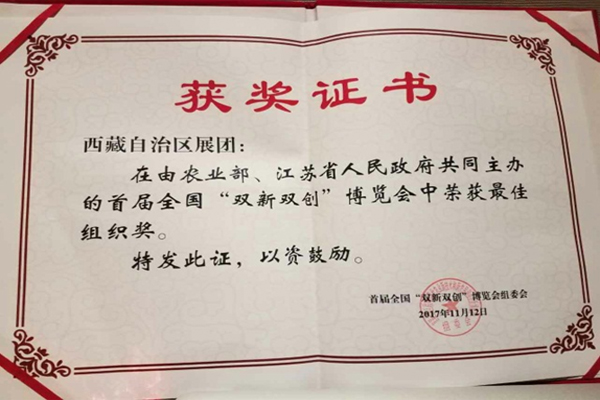 获奖证书
西藏自治区展团：
在由农业部、江苏省人民政府共同主办
的首届全国“双新双创”博览会中荣获最佳
组织奖。
特发此证，以资鼓励。
首届全国“双新双创”博览会组委会
2017年11月12日